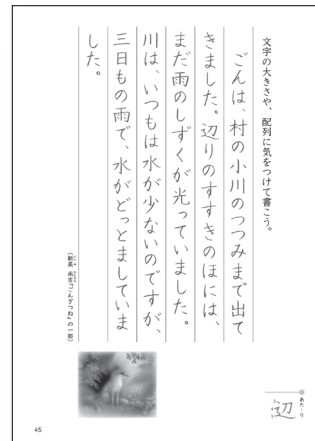 文字の大きさや、配列に気をつけて書こう。
ごんは、村の小川のつつみまで出て
きました。辺りのすすきのほには、
まだ雨のしずくが光っていました。
川は、いつもは水が少ないのですが、
三日もの雨で、水がどっとましていま
した。
(新美 南吉「ごんぎつね」の一部)
あた-り
辺
45